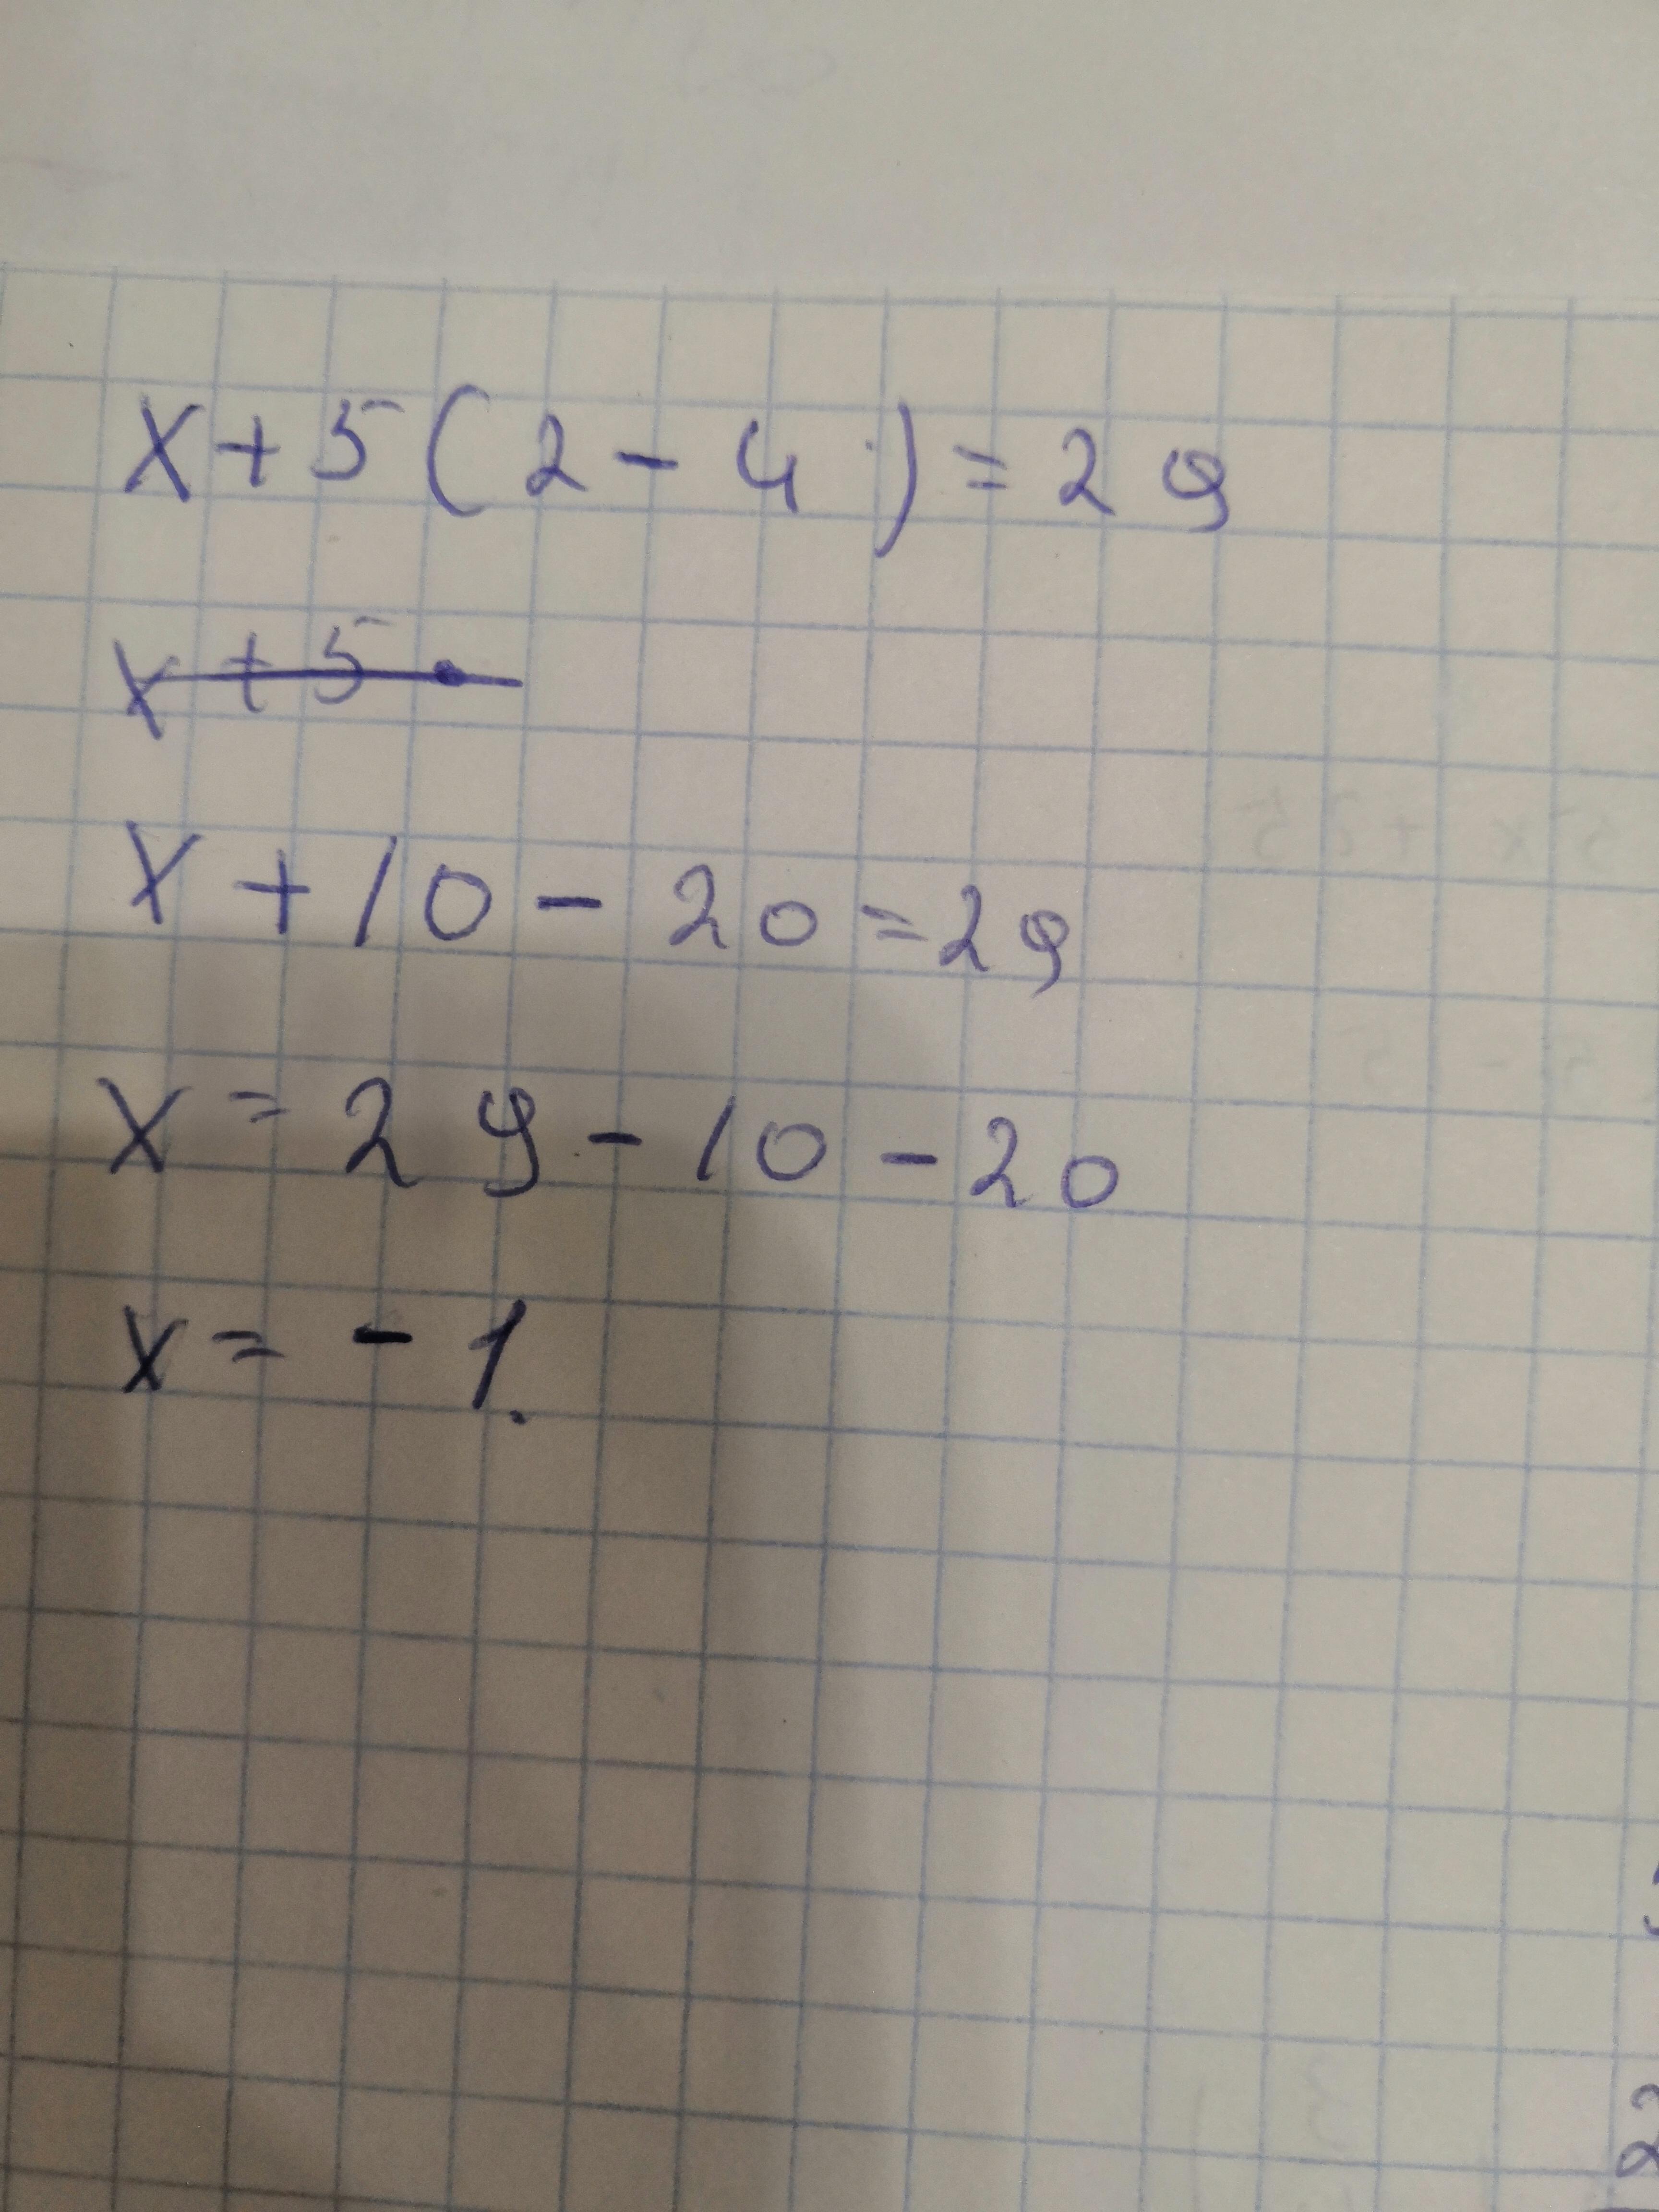 x+5(2-4)=29
x+5
x+10-20=29
x=29-10-20
x=-1.
2